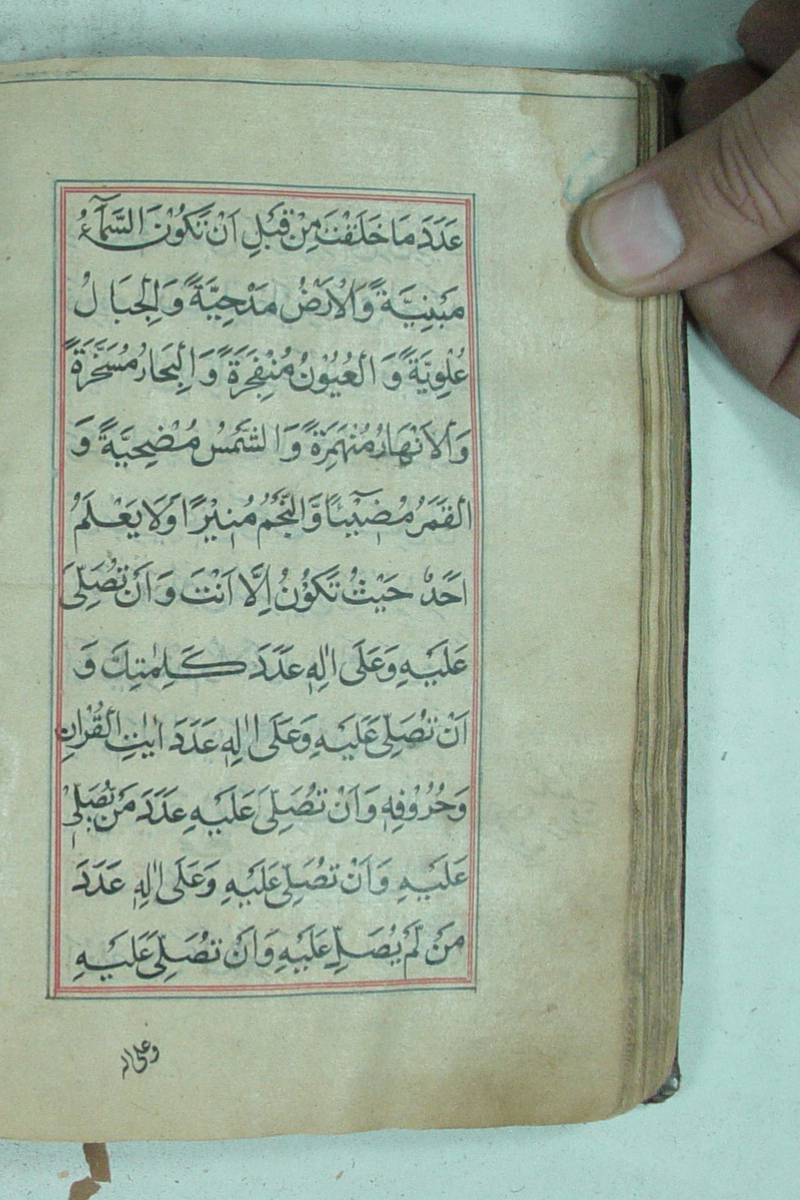 عَدَدَ مَا خَلَقْتَ مِنْ قَبْلِ اَنْ تَكُوْنَ السَّمَآءُ
مَبْنِيَّةً وَّالْاَرْضُ مَدْحِيَّةً وَّالْجِبَالُ
عُلْوِيَّةً وَّ الْعُيُوْنُ مُنْفَجِرَةً وَّ الْبِحَارُ مُسَخَّرَةً
وَّالْاَنْهَارُ مُنْهَمِرَةً وَّ الشَّمْسُ مُضْحِيَّةً وَّ
الْقَمَرُ مُضِيْٓئًا وَّالنَّجْمُ مُنِيْرًا وَّلَا يَعْلَمُ
اَحَدٌ حَيْثُ تَكُوْنُ اِلَّا اَنْتَ وَ اَنْ تُصَلِّيَ
عَلَيْهِ وَعَلٰى اٰلِهٖ عَدَدَ كَلِمٰتِكَ وَ
اَنْ تُصَلِّيَ عَلَيْهِ وَعَلٰى اٰلِهٖ عَدَدَ اٰيٰتِ الْقُرْاٰنِ
وَحُرُوْفِهٖ وَاَنْ تُصَلِّيَ عَلَيْهِ عَدَدَ مَنْ يُّصَلِّيْ
عَلَيْهِ وَاَنْ تُصَلِّيَ عَلَيْهِ وَعَلٰى اٰلِهٖ عَدَدَ
مَنْ لَّمْ يُصَلِّ عَلَيْهِ وَاَنْ تُصَلِّيَ عَلَيْهِ
وعلى اله